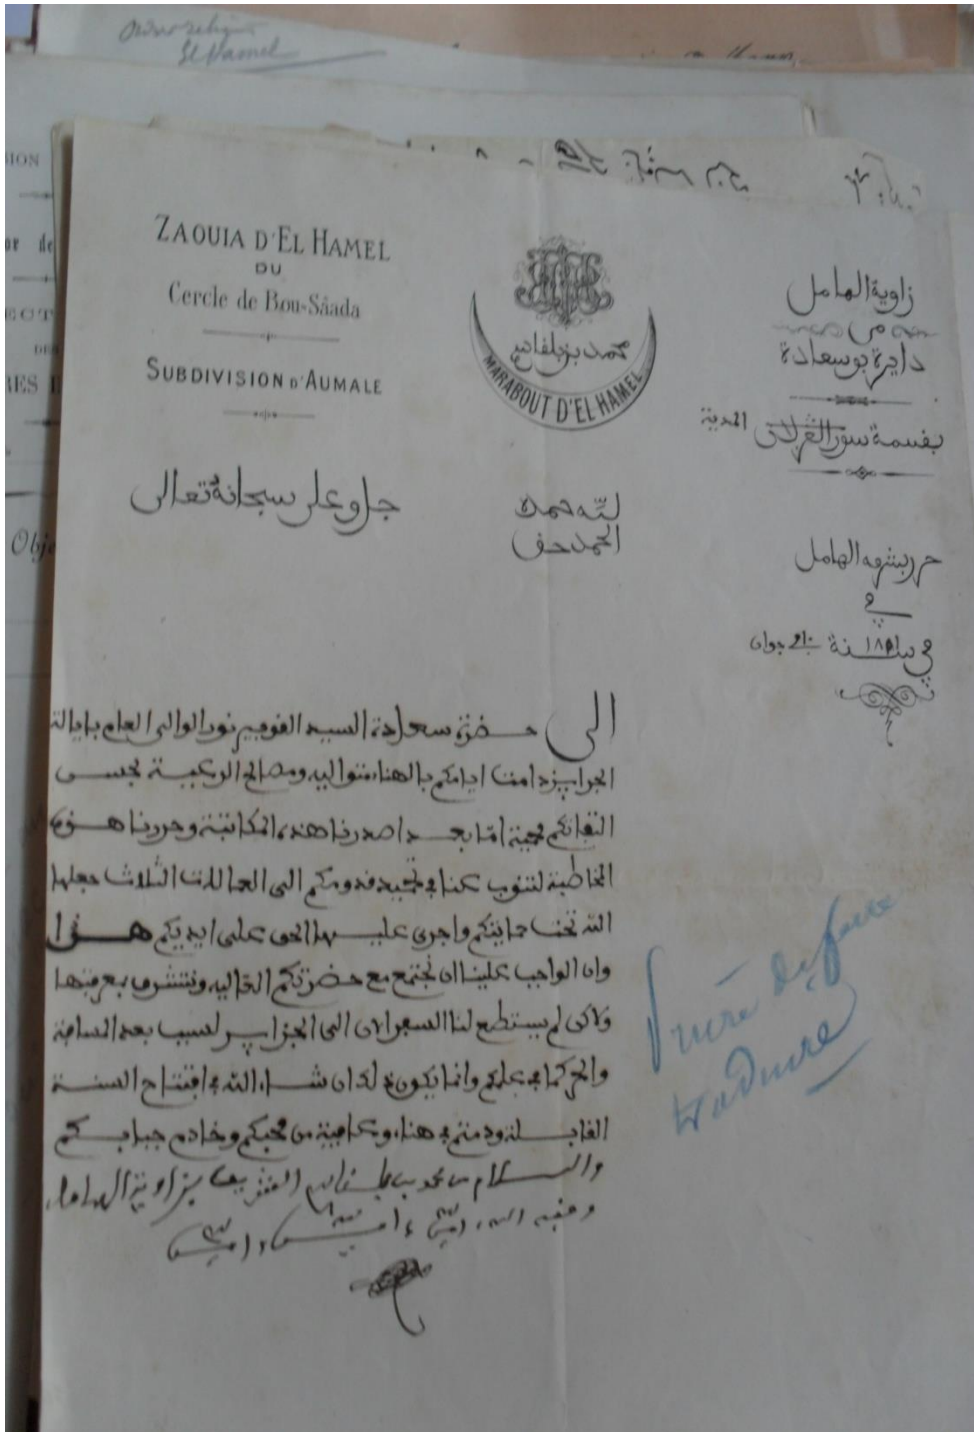 El Hamel
ZAOUIA D'EL HAMEL
DU
Cercle de Bou-Sâada
SUBDIVISION D'AUMALE
محمد بن بلقاسم
MARABOUT D'EL HAMEL
زاوية الهامل
من
دايرة بوسعادة
بقسمة سور الغزلان المدية
جل وعلى سبحانه وتعالى
لله حمده
الحمد حق
حرر بشرفه الهامل
في
في سنة جوان
الى حضرة سعادة السيد القوفيرنور الوالي العام بايالة
الجزاير دامت ايامكم بالهناء متواليه ومصالح الرعية بحسن
التفاتكم اما بعد اصدرنا هذه المكاتبة وحررنا هذه
المخاطبة لتنوب عنا في قدومكم الى العمالات الثلاث جعلها
الله تحت حمايتكم واجرى عليها الحق على ايديكم هذا
وان الواجب علينا ان نجتمع مع حضرتكم ونتشرف بمعرفتها
ولاكن لم يستطع لنا السفر الان الى الجزاير لسبب بعد المسافة
والحر كما في علمكم وانما يكون ذلك ان شاء الله في افتتاح السنة
القابلة ودمتم في هناء وعافية من محبكم وخادم جنابكم
والسلام من محمد بن بلقاسم الشريف بزاوية الهامل
وفقه الله امين امين امين
Prière de faire
traduire
Obje